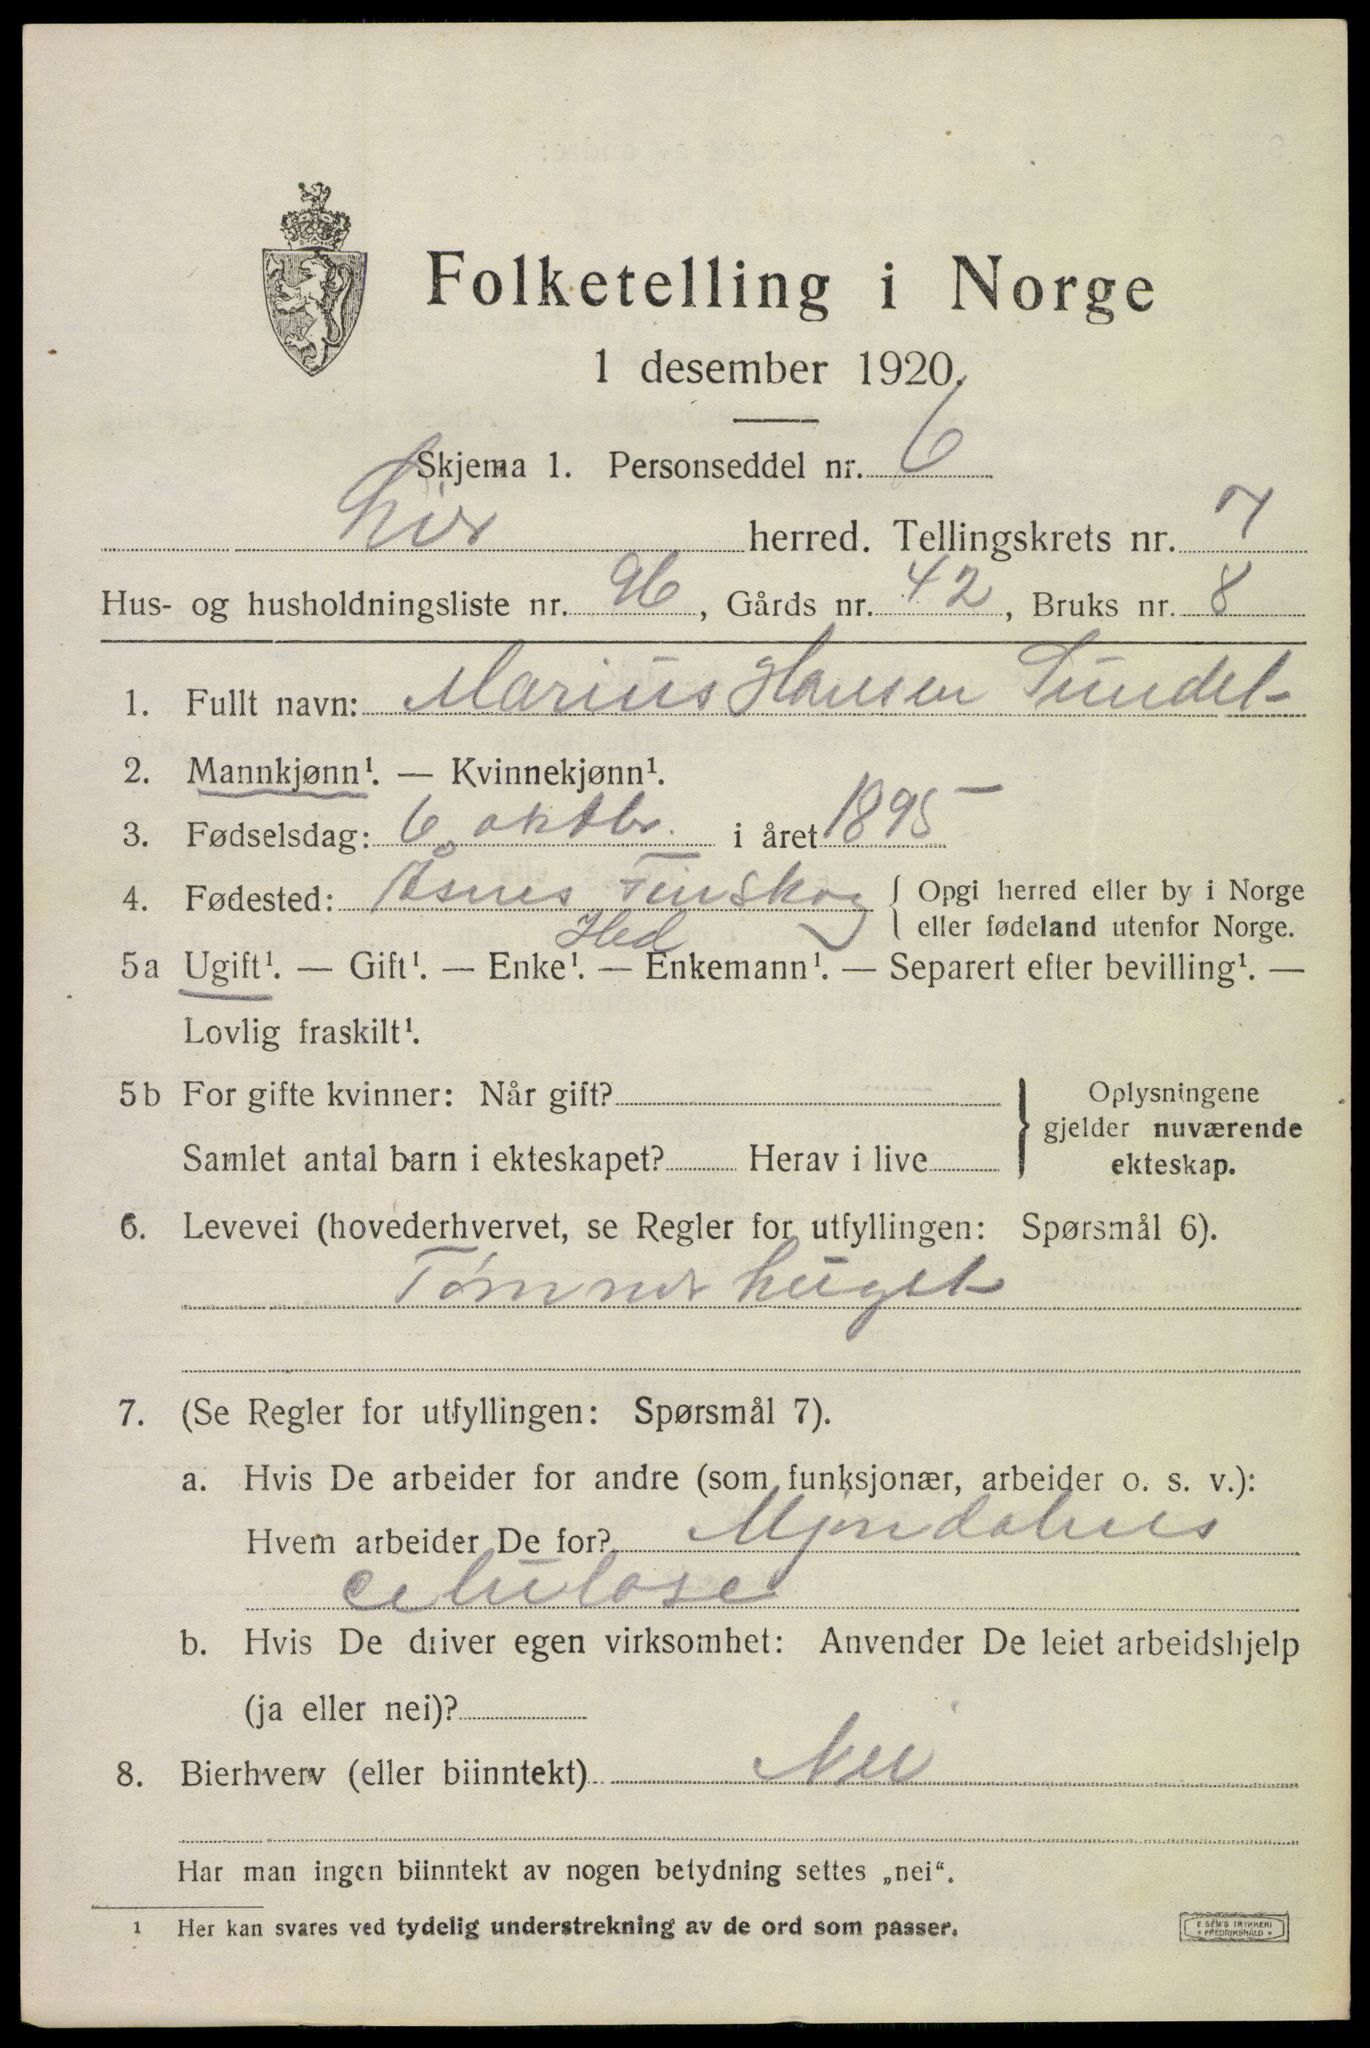 Folketelling i Norge
1 desember 1920.
Skjema 1. Personseddel nr. 6
Lier herred. Tellingskrets nr. 7
Hus- og husholdningsliste nr. 96, Gårds nr. 42, Bruks nr. 8
1. Fullt navn: Marius Hansen Sundet
2. Mannkjønn¹. — Kvinnekjønn¹.
3. Fødselsdag: 6 oktbr. i året 1895
4. Fødested: Åsnes Finskog { Opgi herred eller by i Norge
eller fødeland utenfor Norge.
Hed
5a Ugift¹. — Gift¹. — Enke¹. — Enkemann¹. — Separert efter bevilling¹. —
Lovlig fraskilt¹.
5b For gifte kvinner: Når gift?
Samlet antal barn i ekteskapet? Herav i live
} Oplysningene
gjelder nuværende
ekteskap.
6. Levevei (hovederhvervet, se Regler for utfyllingen: Spørsmål 6).
Tømmerhuget
7. (Se Regler for utfyllingen: Spørsmål 7).
a. Hvis De arbeider for andre (som funksjonær, arbeider o. s. v.):
Hvem arbeider De for? Mjøndalens
celulose
b. Hvis De driver egen virksomhet: Anvender De leiet arbeidshjelp
(ja eller nei)?
8. Bierhverv (eller biinntekt) Nei
Har man ingen biinntekt av nogen betydning settes „nei“.
¹ Her kan svares ved tydelig understrekning av de ord som passer.
E. SEM'S TRYKKERI
FREDRIKSHALD